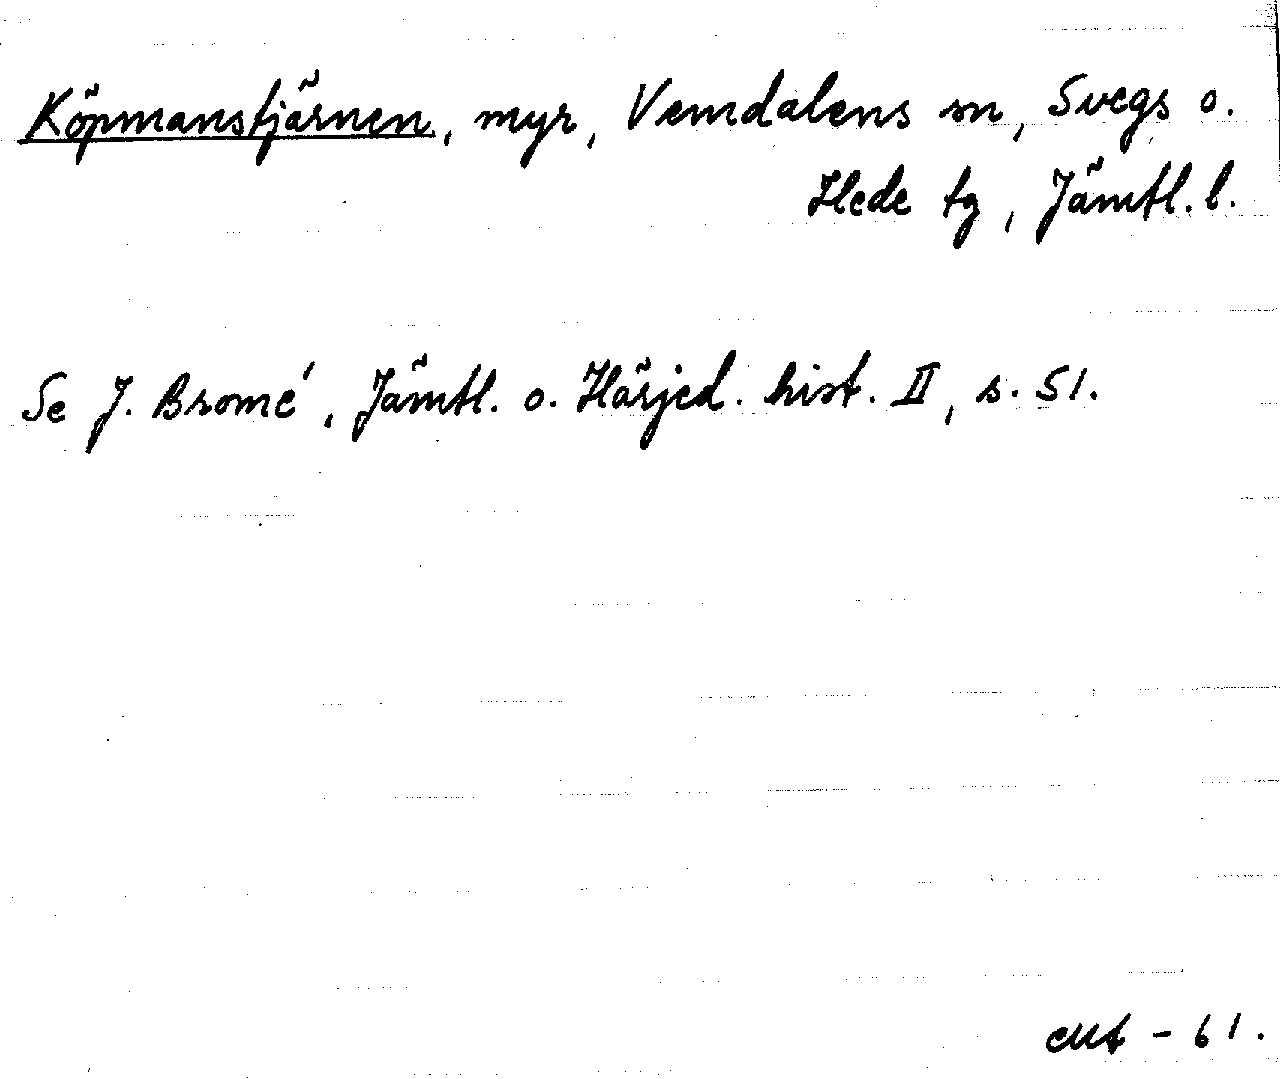 Köpmanstjärnen, myr, Vemdalens sn, Svegs o.
Hede tg, Jämtl. l.
Se J. Bromé, Jämtl. o. Härjed. hist. II, s. 51.
- 61.